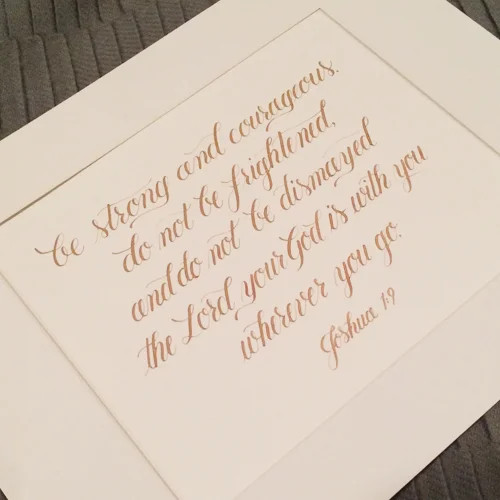 be strong and courageous.
do not be frightened,
and do not be dismayed
the Lord your God is with you
wherever you go.
Joshua 1:9